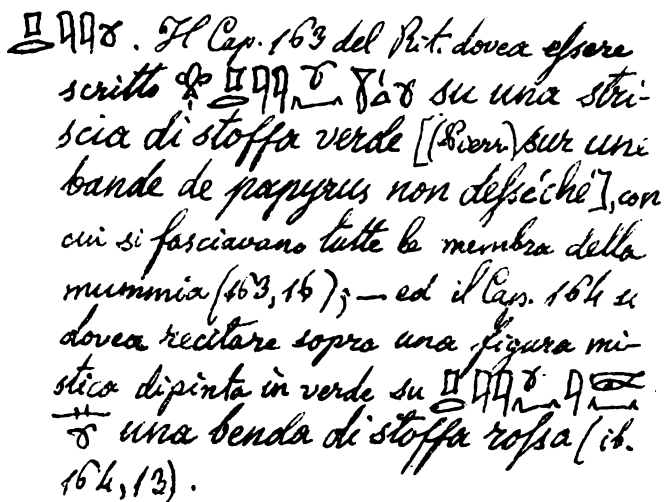 . Il Cap. 163 del Rit. dovea essere
scritto su una stri-
scia di stoffa verde [(Pierr) sur une
bande de papyrus non desséché], con
cui si fasciavano tutte le membra della
mummia (163,16); — ed il Cap. 164 si
dovea recitare sopra una figura mi-
stica dipinta in verde su
una benda di stoffa rossa (ib.
164, 13).